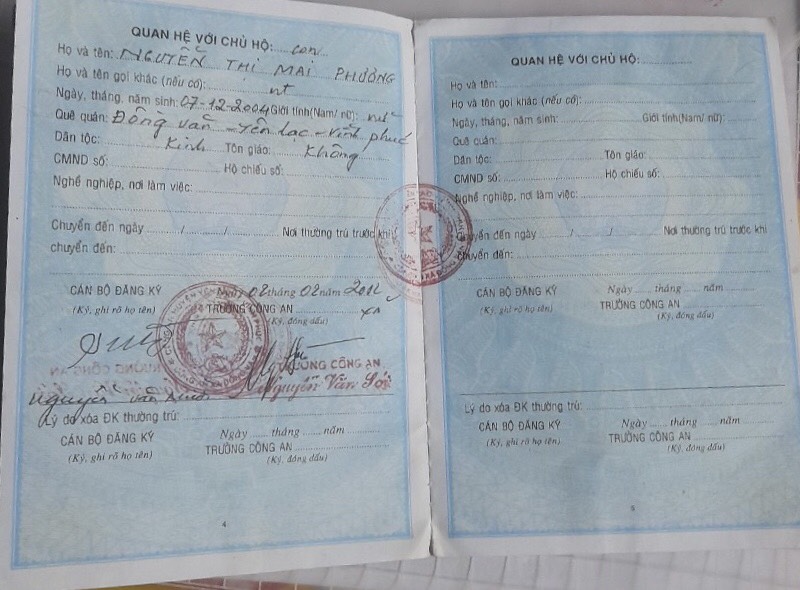 QUAN HỆ VỚI CHỦ HỘ: con
Họ và tên: NGUYỄN THỊ MAI PHƯƠNG
Họ và tên gọi khác (nếu có): nt
Ngày, tháng, năm sinh: 07-12-2004 Giới tính(Nam/ nữ): nữ
Quê quán: Đồng văn - Yên lạc - Vĩnh phúc
Dân tộc: Kinh Tôn giáo: Không
CMND số: Hộ chiếu số:
Nghề nghiệp, nơi làm việc:
Chuyển đến ngày / / Nơi thường trú trước khi
chuyển đến:
CÁN BỘ ĐĂNG KÝ
(Ký, ghi rõ họ tên)
Ngày 02 tháng 02 năm
TRƯỞNG CÔNG AN xã
(Ký, đóng dấu)
TRƯỞNG CÔNG AN
Nguyễn Văn
Nguyễn Văn
Lý do xóa ĐK thường trú:
CÁN BỘ ĐĂNG KÝ
(Ký, ghi rõ họ tên)
Ngày tháng năm
TRƯỞNG CÔNG AN
(Ký, đóng dấu)
4
QUAN HỆ VỚI CHỦ HỘ:
Họ và tên:
Họ và tên gọi khác (nếu có):
Ngày, tháng, năm sinh: Giới tính(Nam/ nữ):
Quê quán:
Dân tộc: Tôn giáo:
CMND số: Hộ chiếu số:
Nghề nghiệp, nơi làm việc:
Chuyển đến ngày / / Nơi thường trú trước khi
chuyển đến:
CÁN BỘ ĐĂNG KÝ
(Ký, ghi rõ họ tên)
Ngày tháng năm
TRƯỞNG CÔNG AN
(Ký, đóng dấu)
Lý do xóa ĐK thường trú:
CÁN BỘ ĐĂNG KÝ
(Ký, ghi rõ họ tên)
Ngày tháng năm
TRƯỞNG CÔNG AN
(Ký, đóng dấu)
5